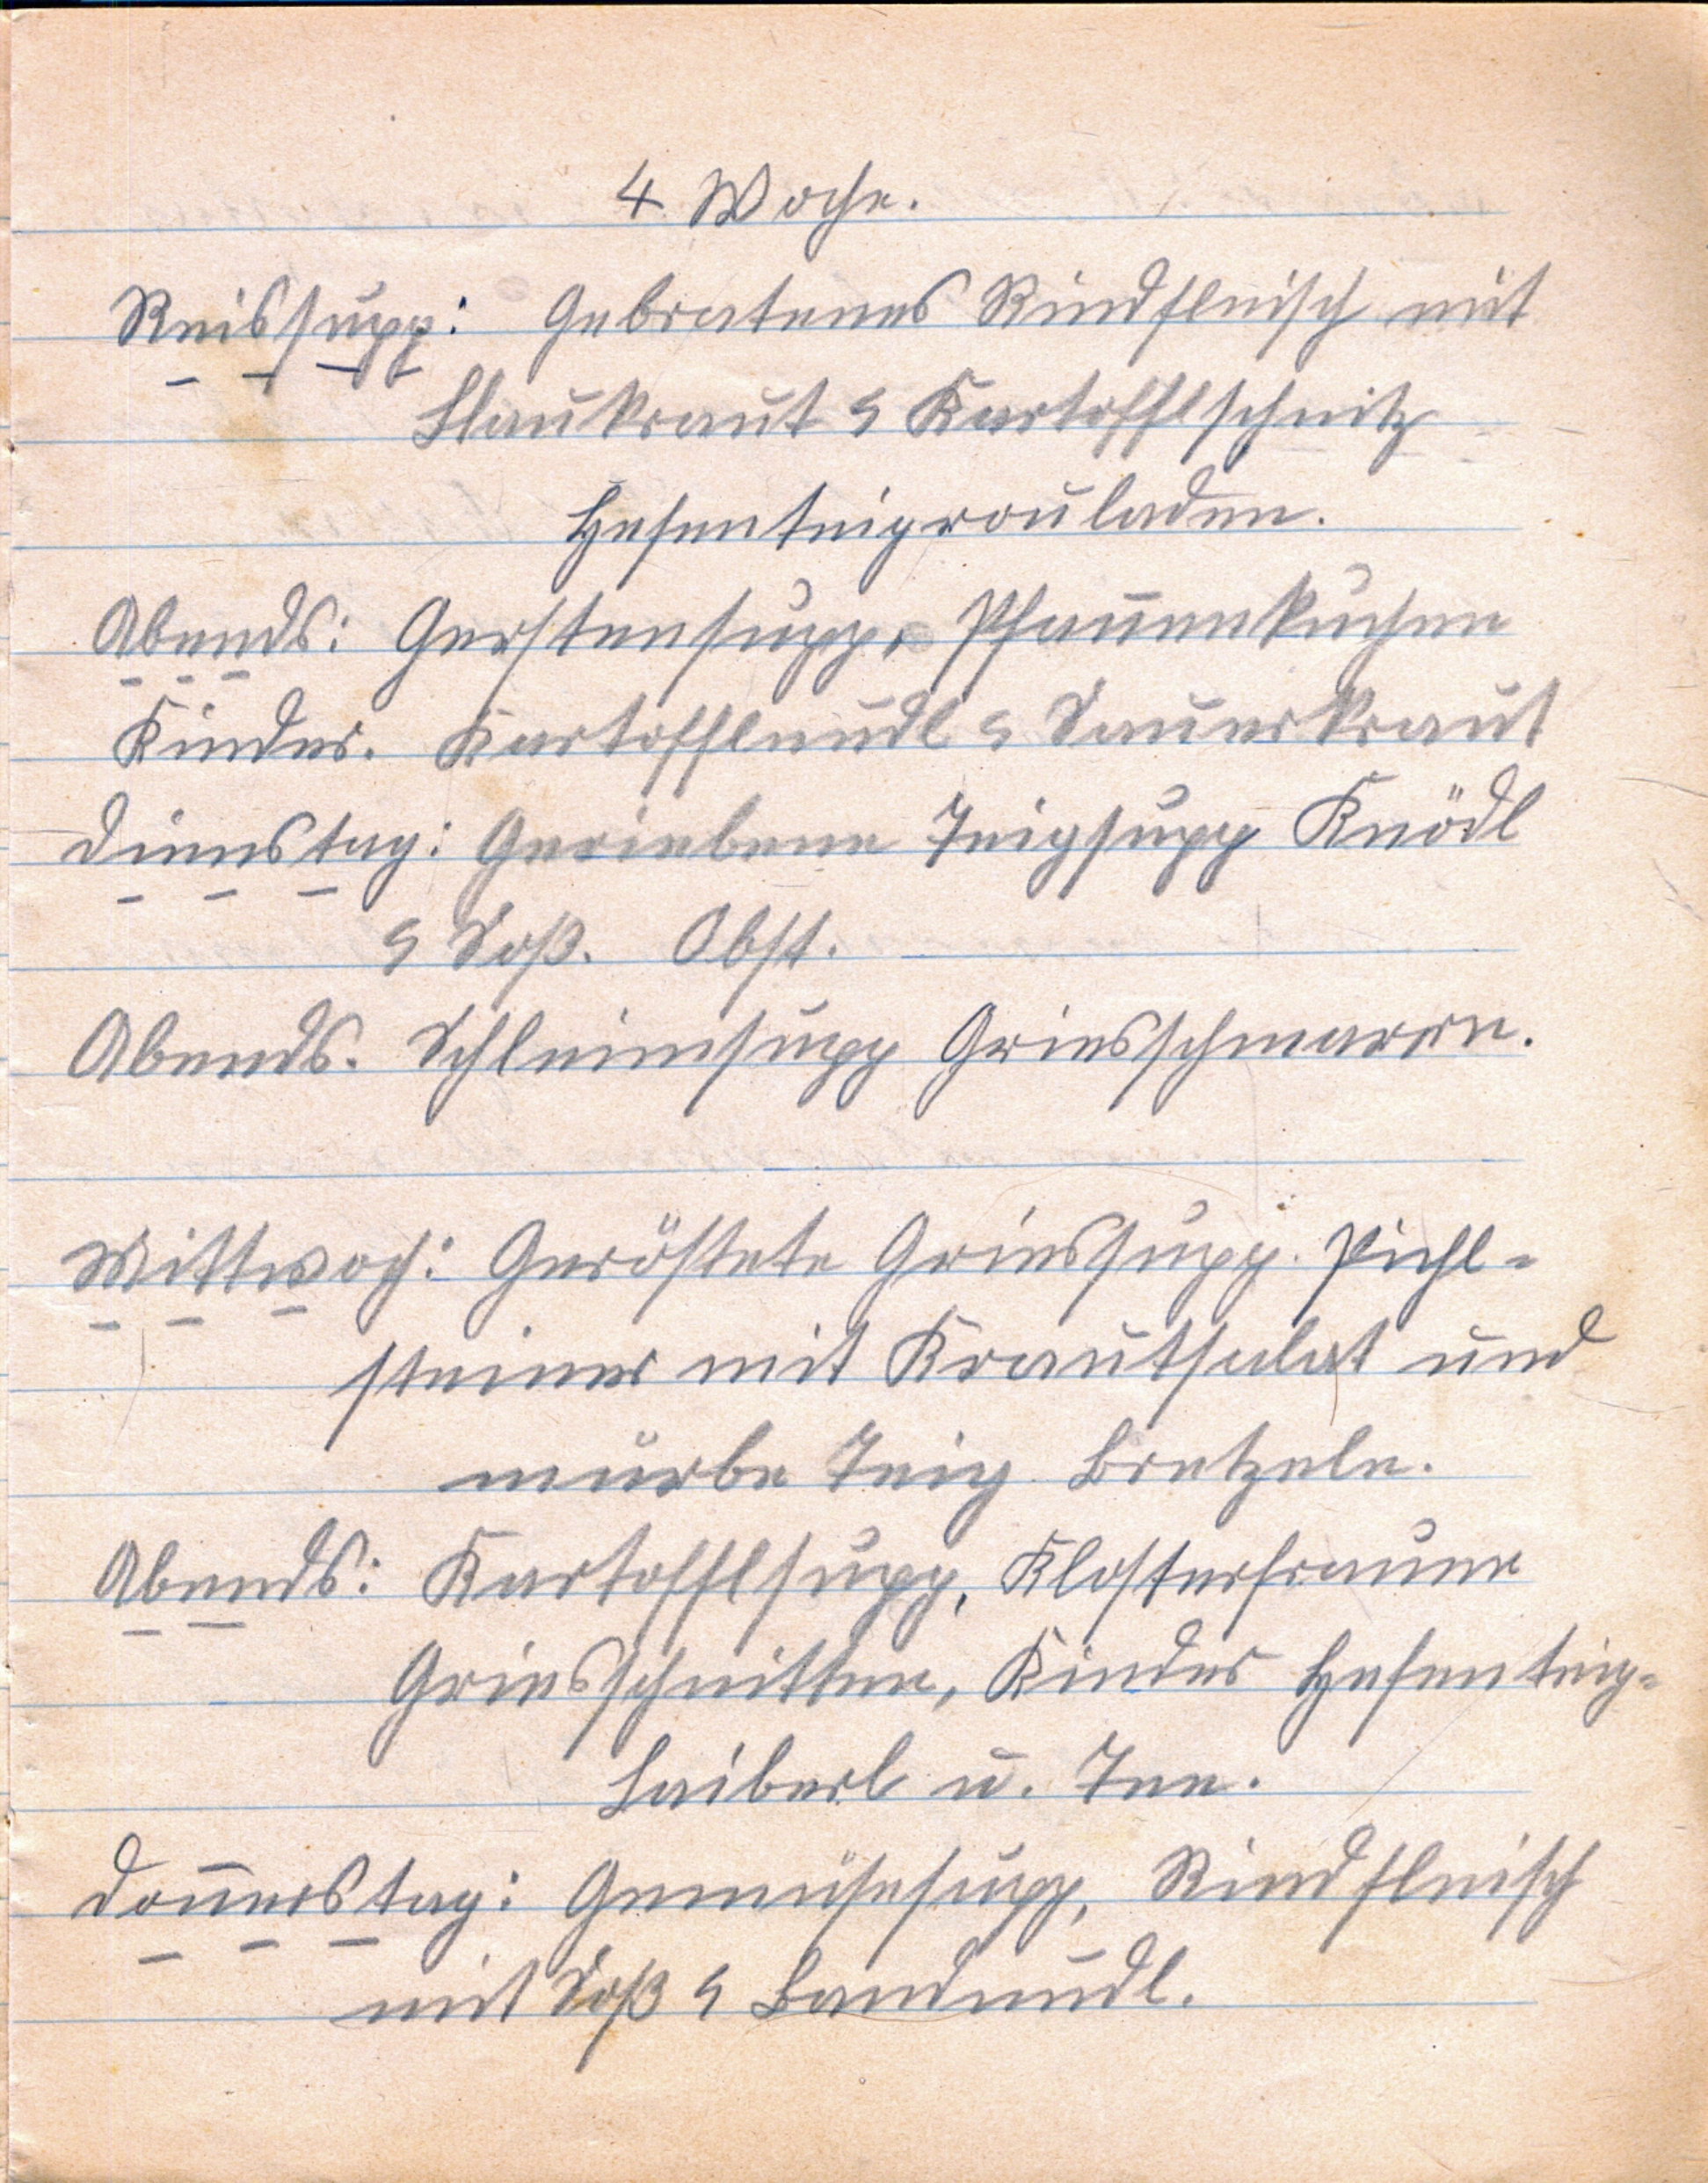 4. Woche.
Reissupp: Gebratenes Rindfleisch mit
Blaukraut & Kartofflschnitz
Hefenteigrouladen.
Abends: Gerstensupp, Pfannenkuchen
Kinder. Kartofflnudl & Sauerkraut
Dienstag: Geriebene Teigsupp Knödl
& Soß. Obst.
Abends. Schleimsupp Griesschmarrn.
Mittwoch: Geröstete Griessupp. Pichl-
steiner mit Krautsalat und
mürbe Teig Bretzeln.
Abends: Kartofflsupp, Klosterfrauen
Griesschnitten, Kinder Hefenteig-
Laiberl u. Tee.
Donnerstag: Gemüsesupp, Rindfleisch
mit Soß & Bandnudl.